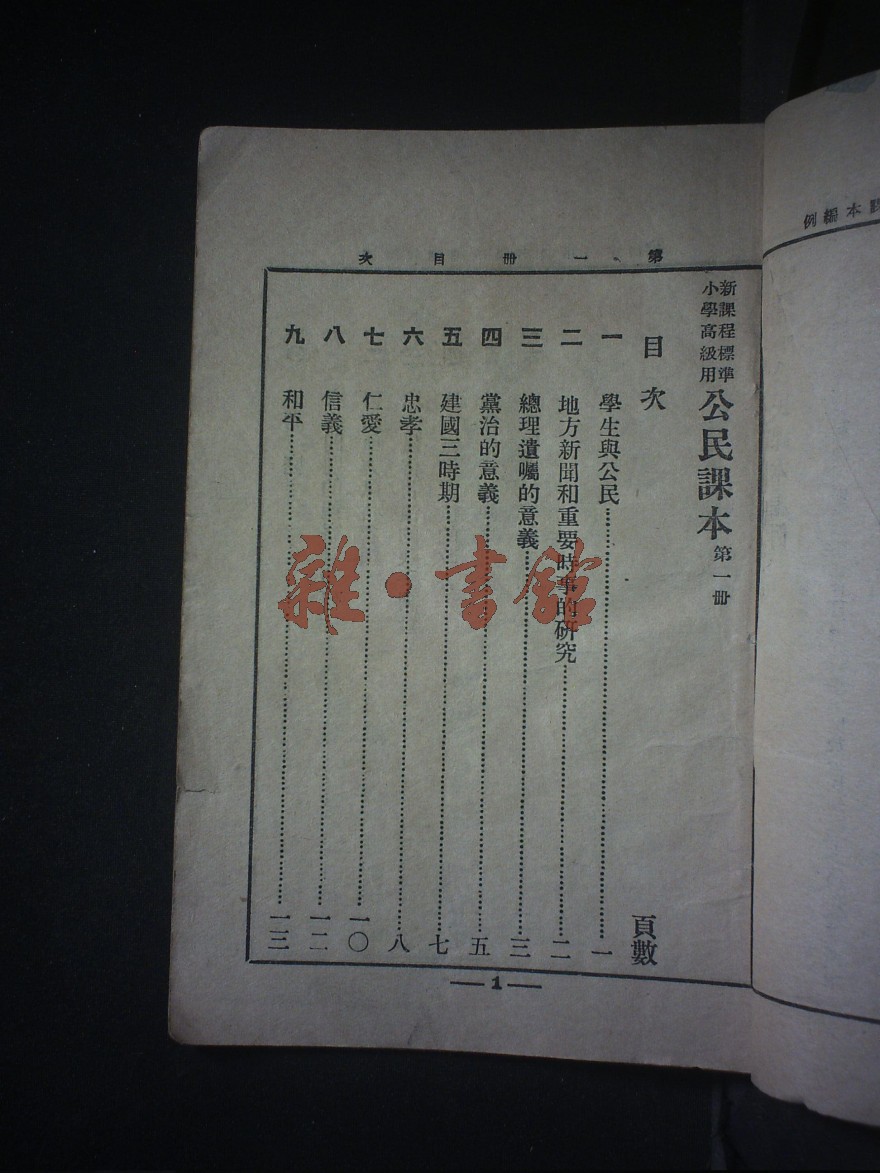 第一册目次
新課程標準
小學高級用
公民課本 第一册
目次 頁數
一 學生與公民 一
二 地方新聞和重要時事的研究 二
三 總理遺囑的意義 三
四 黨治的意義 五
五 建國三時期 七
六 忠孝 八
七 仁愛 一〇
八 信義 一二
九 和平 一三
— 1 —
課本編例
雜·書館